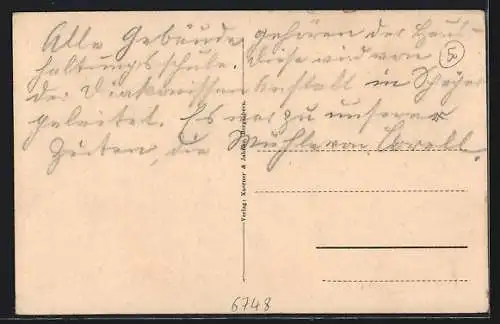 Alle Gebäude gehören der Haus-
haltungsschule. Diese wird von
der Diakonissenanstalt in Speyer
geleitet. Es war zu unserer
Zeiten, die Mühle von Correll.
5
Verlag: Koerner &
6748